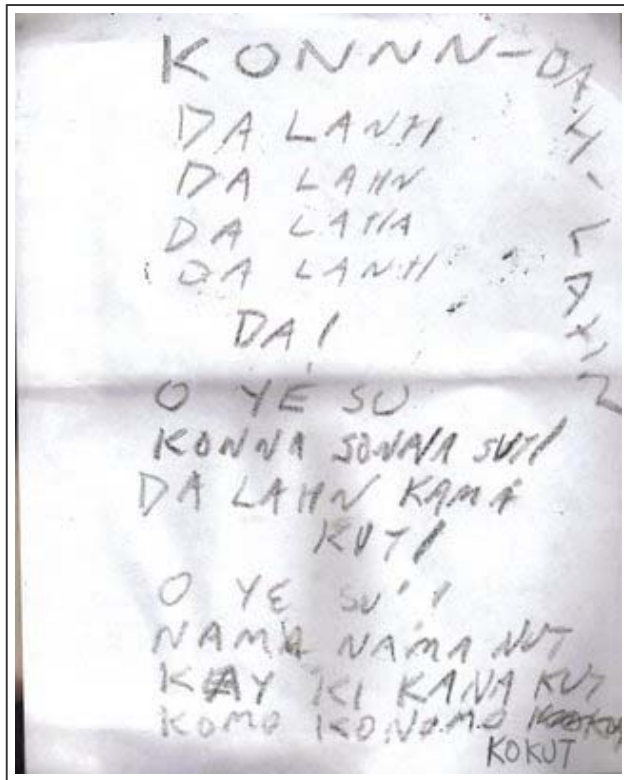 KONNN-DAH-LAHN
DA LANH
DA LAHN
DA LAHA
DA LANH
DA!
O YE SU
KONNA SONANA SUT!
DA LAHN KAMA
KUT!
O YE SU'!
NAMA NAMA NUT
KAY KI KANA KUT
KOMO KONOMO
KOKUT